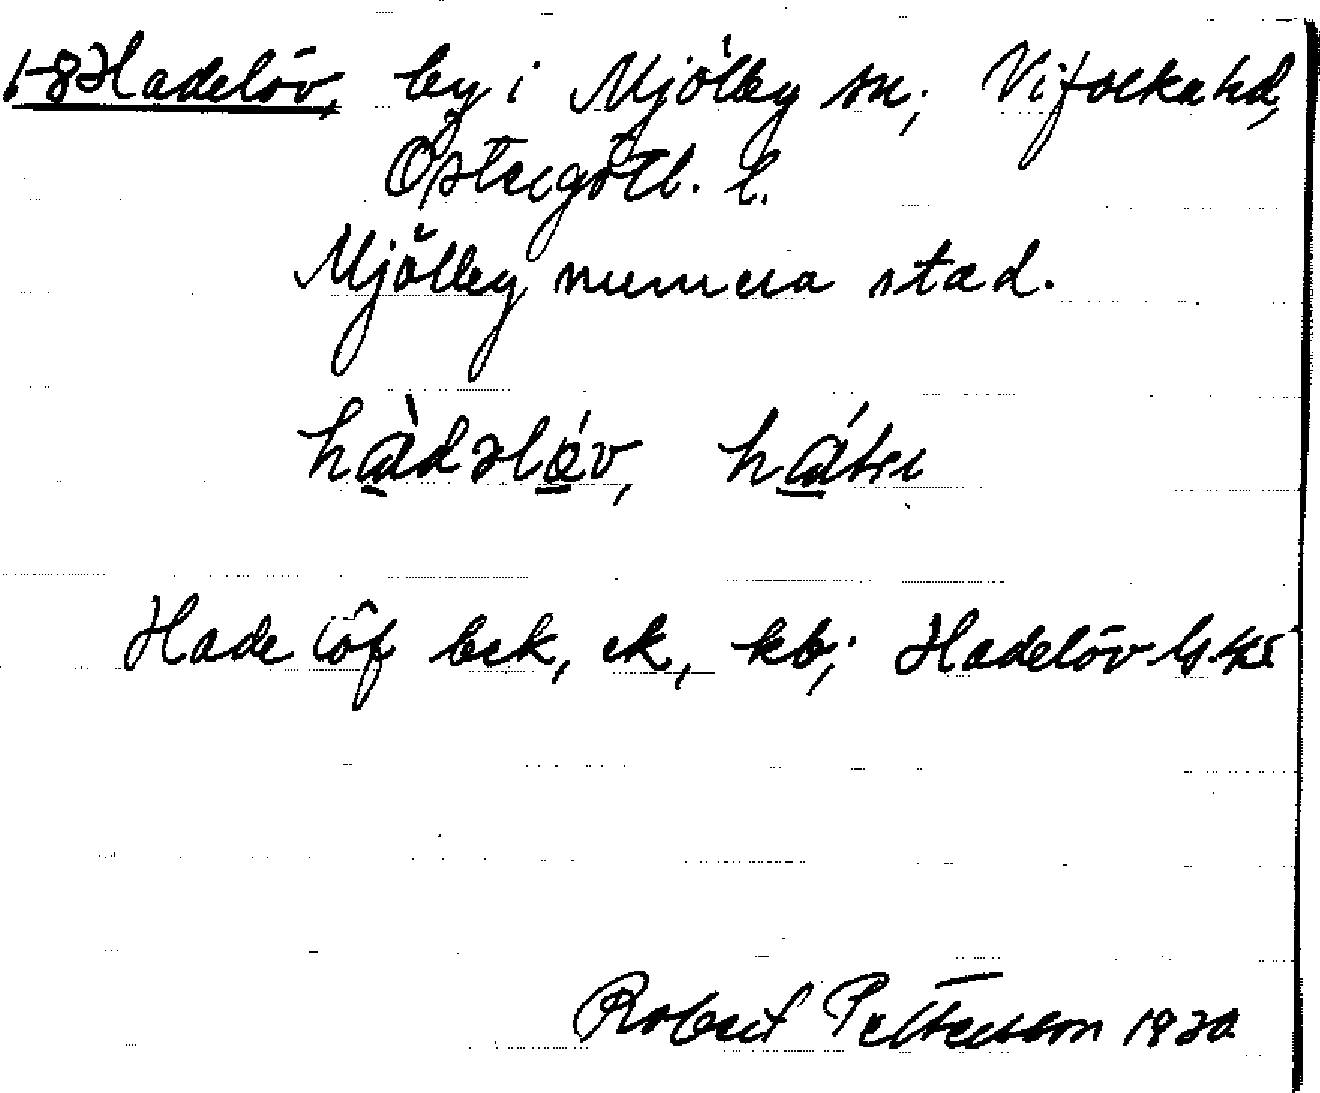 1-8 Hadelöv, by i Mjölby sn; Vifolka hd,
Östergötl. l.
Mjölby numera stad.
hàdəlǿv,
Hadelöf bek, ek, kb; Hadelöv
Robert Petterson